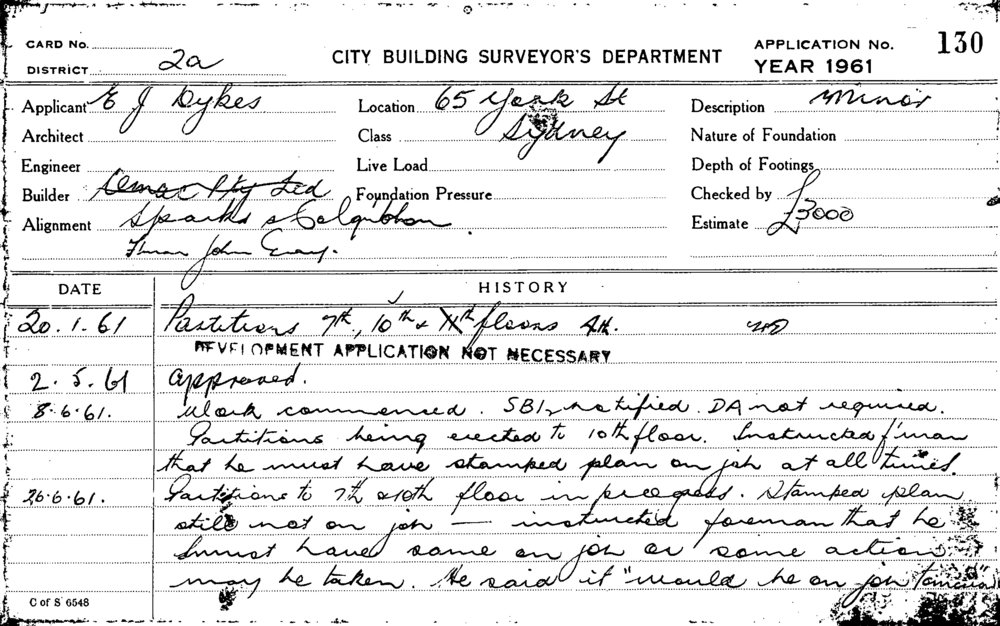 CARD No.
DISTRICT 2a
CITY BUILDING SURVEYOR'S DEPARTMENT
APPLICATION No. 130
YEAR 1961
Applicant E J Dykes
Location 65 York St
Sydney
Description Minor
Architect
Class
Nature of Foundation
Engineer
Live Load
Depth of Footings
Builder Pty Ltd
Foundation Pressure
Checked by
Alignment Sparks &
John
Estimate £3000
DATE
HISTORY
20.1.61 Partitions 7th, 10th & floors 4th.
DEVELOPMENT APPLICATION NOT NECESSARY
2.5.61 Approved.
8.6.61. Work commenced. SBI notified. DA not required.
Partitions being erected to 10th floor. Instructed f'man
that he must have stamped plan on job at all times.
26.6.61. Partitions to 7th & 10th floor in progress. Stamped plan
still not on job — instructed foreman that he
must have same on job or some action
may be taken. He said it "would be on job
C of S 6548